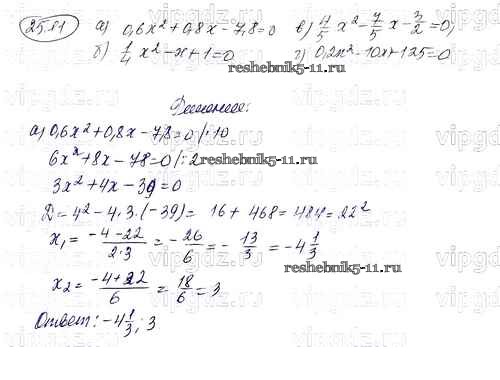 25.81 а) 0,6x² + 0,8x - 7,8 = 0 в) 4/5 x² - 7/5 x - 3/2 = 0;
б) 1/4 x² - x + 1 = 0 г) 0,2x² - 10x + 125 = 0
reshebnik5-11.ru
Решение:
а) 0,6x² + 0,8x - 7,8 = 0 /·10
6x² + 8x - 78 = 0 /:2
reshebnik5-11.ru
3x² + 4x - 39 = 0
D = 4² - 4·3·(-39) = 16 + 468 = 484 = 22²
x₁ = (-4-22)/(2·3) = -26/6 = -13/3 = -4 1/3
reshebnik5-11.ru
x₂ = (-4+22)/6 = 18/6 = 3
Ответ: -4 1/3; 3